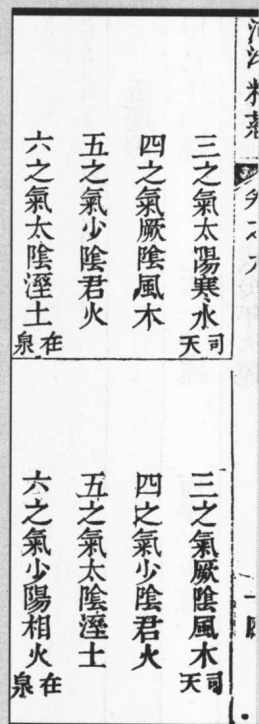 河洛精蘊
外之六
三之氣太陽寒水司天
四之氣厥陰風木
五之氣少陰君火
六之氣太陰溼土在泉
三之氣厥陰風木司天
四之氣少陰君火
五之氣太陰溼土
六之氣少陽相火在泉